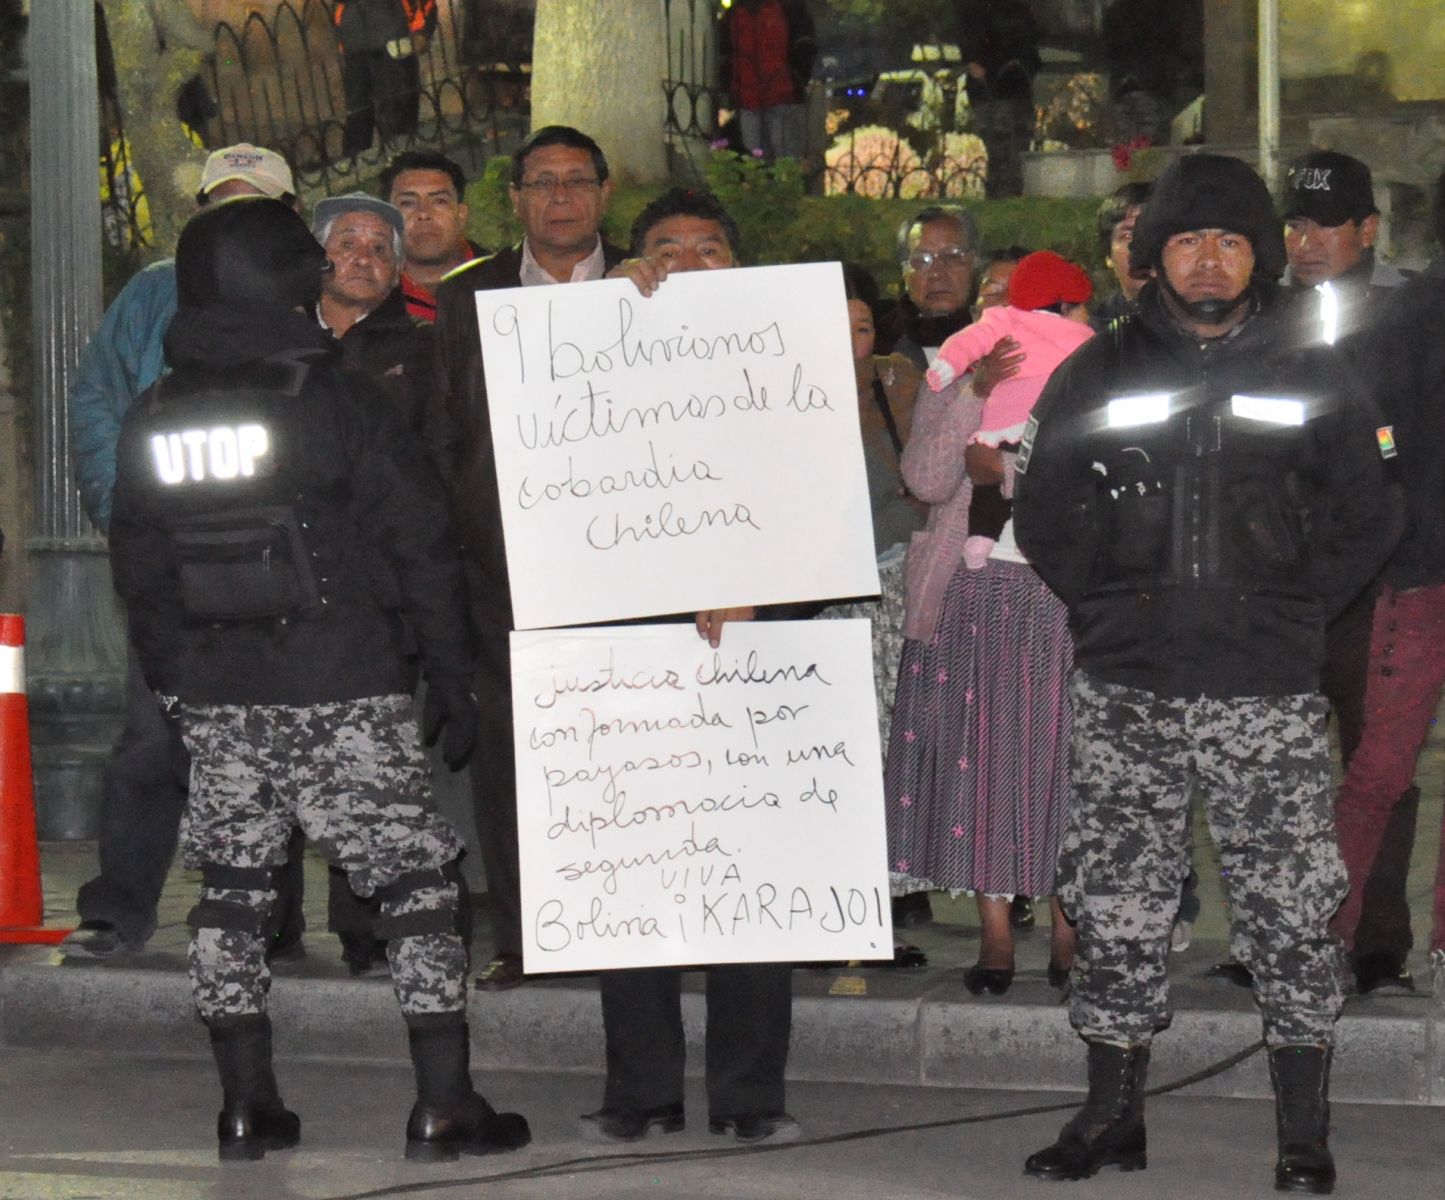 UTOP
FOX
9 bolivianos
víctimas de la
cobardia
chilena
justicia chilena
conformada por
payasos, con una
diplomacia de
segunda.
VIVA
Bolivia ¡KARAJO!